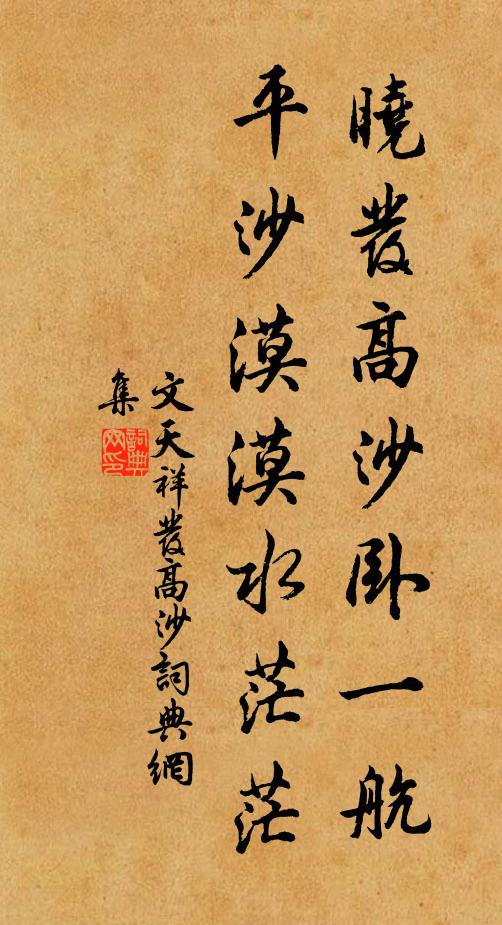 曉發高沙卧一航
平沙漠漠水茫茫
文天祥發高沙詞典網
集
詞典網印